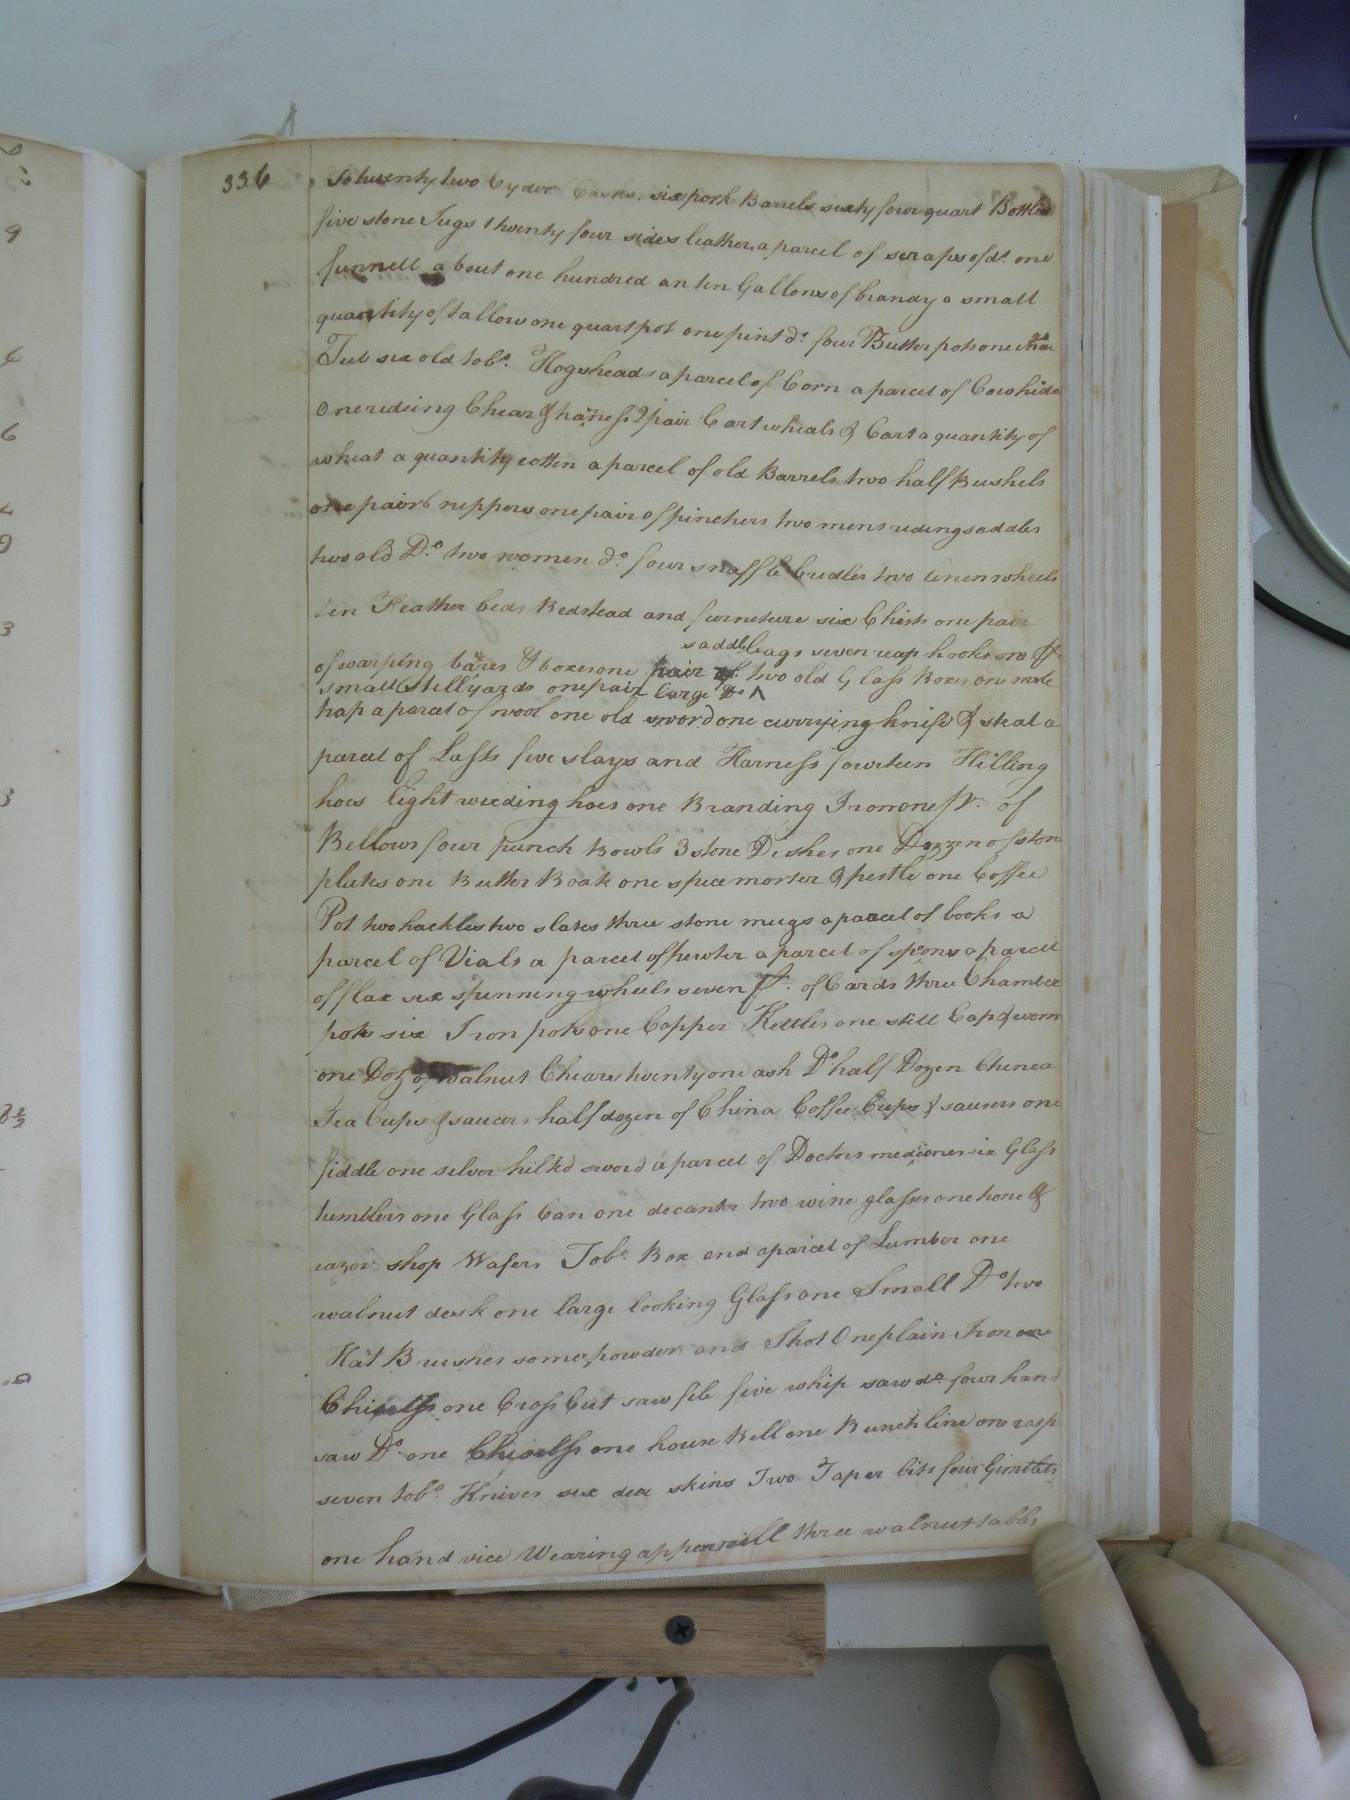 336
To twenty two Cyder Casks. six pork Barrels sixty four quart Bottles
five stone Jugs twenty four sides leather, a parcel of scraps of do. one
funnell about one hundred an ten Gallons of brandy a small
quantity of tallow one quart pot one pint do. four Butter pots one
Tub six old tobo. Hogsheads a parcel of Corn a parcel of Cowhide
One rideing Chear & harness 2 pair Cart wheals & Cart a quantity of
wheat a quantity cotten a parcel of old Barrels two half Bushels
one pair nippers one pair of pinchers two mens riding saddles
two old Do. two women do. four snaffle bridles two linen wheels
ten Feather beds Bedstead and furneture six Chists one pair
saddlebags seven reap hooks one pr.
of warping bares & boxes one pair of two old Glass Boxes one mole
small stillyards one pair large Do ^
hap a parcel of wool one old sword one currying knife & steal a
parcel of Lasts five slays and Harness fourteen Hilling
hoes Eight weeding hoes one Branding Iron one pr. of
Bellows four punch Bowls 3 stone Dishes one Dozzen of ston
plates one Butter Boat one spice morter & pestle one Coffee
Pot two hackles two slates three stone mugs a parcel of books a
parcel of Vials a parcel of pewter a parcel of spoons a parcel
of flax six spinning wheels seven pr. of Cards three Chamber
pots six Iron pots one Copper Kettles one still Cap & worm
one Doz of walnut Chears twenty one ash Do half Dozen Chenea
Tea Cups & saucers half dozen of China Coffee Cups & saucers one
fiddle one silver hilted sword a parcel of Doctors medicines six Glass
tumblers one Glass Can one decanter two wine glasses one hone &
razor shop Wafers Tobo. Box and a parcel of Lumber one
walnut desk one large looking Glass one Small Do two
Hat Brushes some powder and Shot One plain Iron one
Chisells one Cross Cut saw file five whip saw do. four hand
saw Do. one Chisells one house Bell one Bunch line one rasp
seven tobo. Knives six dear skins Two Taper bits four Gimblets
one hand vice Wearing apperrill three walnut tables